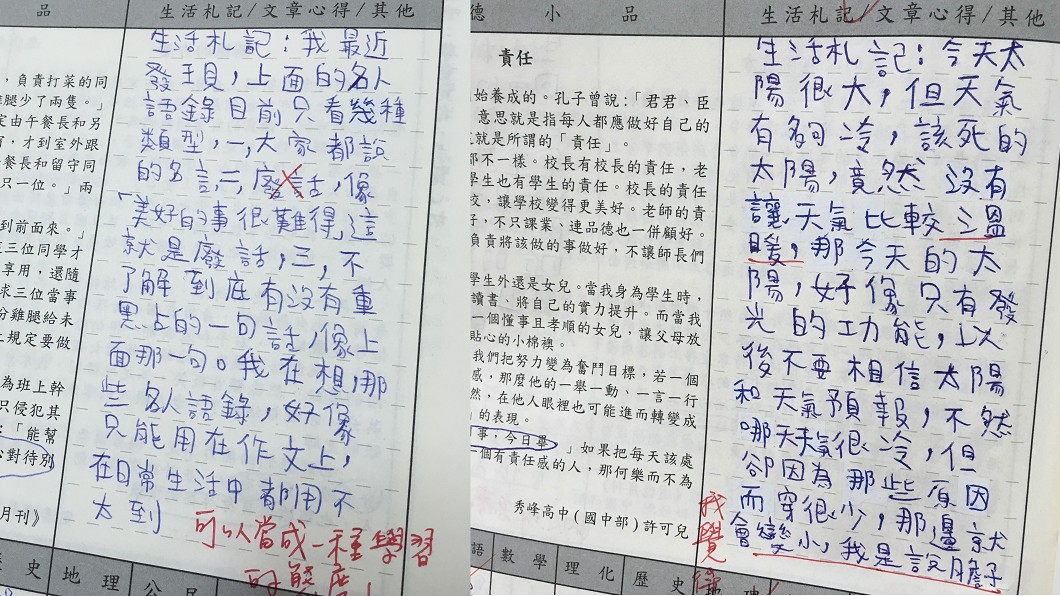 品
生活札記/文章心得/其他
，負責打菜的同
雞腿少了兩隻。」
定由午餐長和另
，才到室外跟
餐長和留守同
只一位。」兩
到前面來。」
三位同學才
享用，還隨
求三位當事
分雞腿給未
上規定要做
為班上幹
只侵犯其
：「能幫
對待別
月刊》
生活札記：我最近
發現，上面的名人
語錄目前只看幾種
類型，一，大家都說
的名言，二，廢話，像
「美好的事很難得」這
就是廢話，三，不
了解到底有沒有重
點的一句話，像上
面那一句。我在想，那
些名人語錄，好像
只能用在作文上，
在日常生活中都用不
太到
可以當成一種學習
史 地理 公民
德 小 品
生活札記/文章心得/其他
責任
始養成的。孔子曾說：「君君、臣
意思就是指每人都應做好自己的
就是所謂的「責任」。
都不一樣。校長有校長的責任，老
學生也有學生的責任。校長的責任
校，讓學校變得更美好。老師的責
好，不只課業、連品德也一併顧好。
負責將該做的事做好，不讓師長們
學生外還是女兒。當我身為學生時，
讀書、將自己的實力提升。而當我
一個懂事且孝順的女兒，讓父母放
貼心的小棉襖。
我們把努力變為奮鬥目標，若一個
感，那麼他的一舉一動、一言一行
然，在他人眼裡也可能進而轉變成
」的表現。
事，今日畢 」如果把每天該處
一個有責任感的人，那何樂而不為
秀峰高中(國中部)許可兒
生活札記：今天太
陽很大，但天氣
有夠冷，該死的
太陽，竟然沒有
讓天氣比較溫
暖，那今天的太
陽，好像只有發
光的功能，以
後不要相信太陽
和天氣預報，不然
哪天天氣很冷，但
卻因為那些原因
而穿很少，那邊就
會變小，我是說膽子
我覺得
語 數學 理化 歷史 理